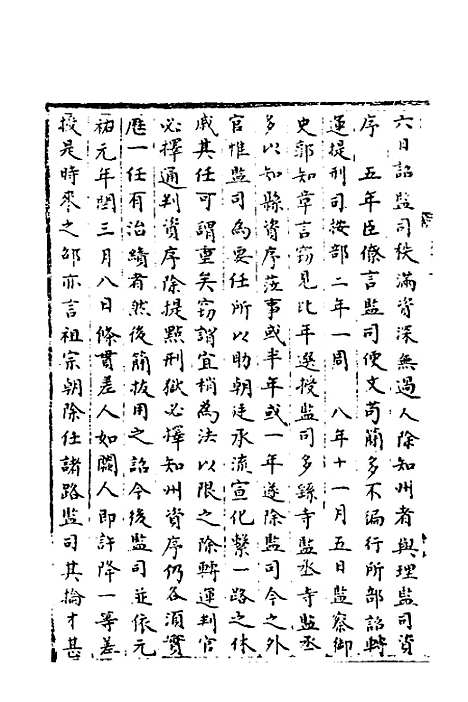 六日詔監司秩滿資深無過人除知州者與理監司資
序　五年臣僚言監司便文苟簡多不徧行所部詔轉
運提刑司按部二年一周　八年十一月五日監察御
史郭知章言竊見比年選授監司多繇寺監丞寺監丞
多以知縣資序蒞事或半年或一年遂除監司今之外
官惟監司為要任所以助朝廷承流宣化繫一路之休
戚其任可謂重矣竊謂宜稍為法以限之除轉運判官
必擇通判資序除提點刑獄必擇知州資序仍各須實
歷一任有治績者然後簡拔用之詔今後監司並依元
祐元年閏三月八日條貫差人如闕人即許降一等差
授是時豖之邵亦言祖宗朝除任諸路監司其掄才甚